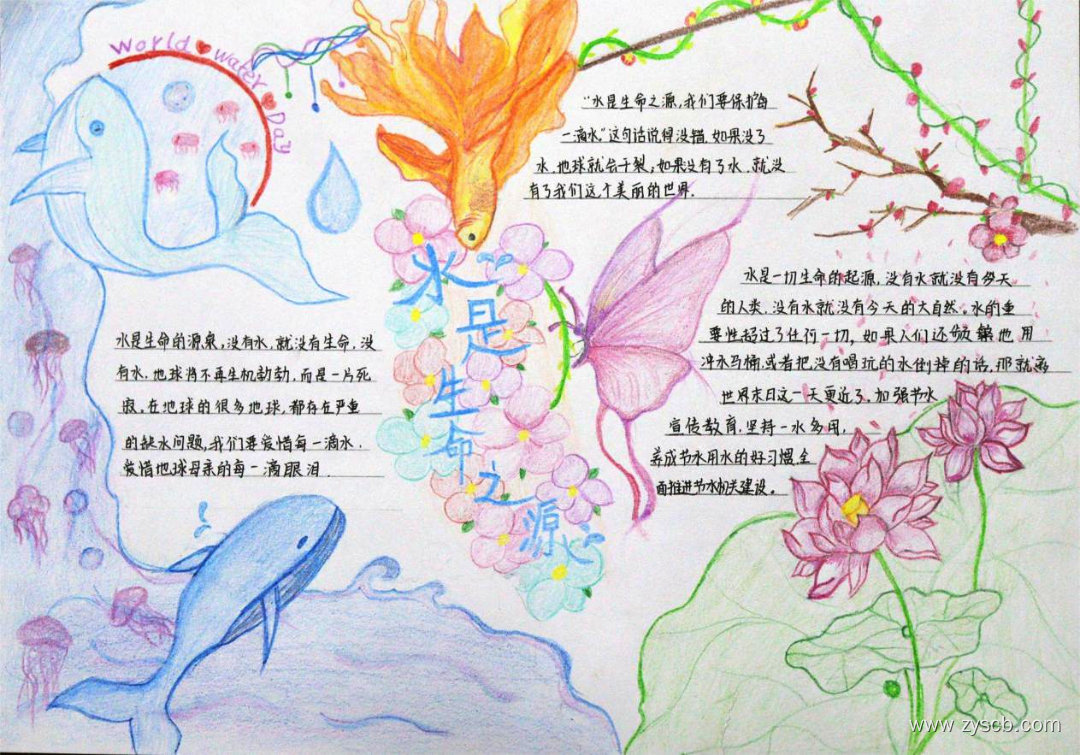 World water Day
水是生命之源
"水是生命之源,我们要保护每
一滴水"这句话说得没错.如果没了
水.地球就会干裂;如果没有了水.就没
有了我们这个美丽的世界.
水是一切生命的起源,没有水就没有今天
的人类.没有水就没有今天的大自然。水的重
要性超过了任何一切,如果人们还 他 用
冲水马桶.或者把没有喝玩的水倒掉的话.那就离
世界末日这一天更近了。加强节水
宣传教育.坚持一水多用,
养成节水用水的好习惯.全
面推进节水机关建设。
水是生命的源泉,没有水,就没有生命,没
有水.地球将不再生机勃勃,而是一片死
寂,在地球的很多地球,都存在严重
的缺水问题,我们要爱惜每一滴水.
爱惜地球母亲的每一滴眼泪.
www.zyscb.com